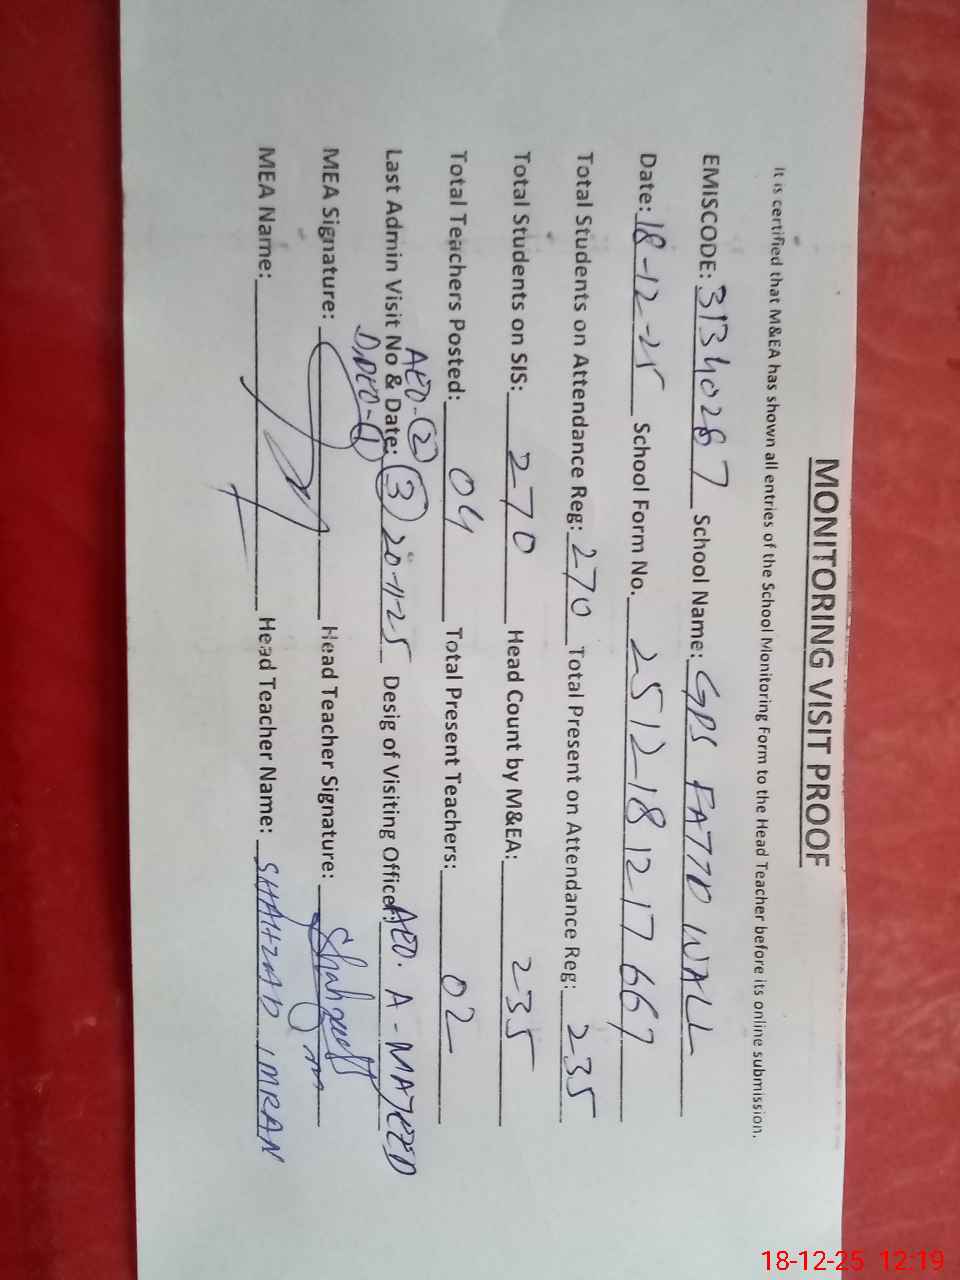 MONITORING VISIT PROOF
It is certified that M&EA has shown all entries of the School Monitoring Form to the Head Teacher before its online submission.
EMISCODE: 31340287 School Name: GPS FATTD WALL
Date: 18-12-25 School Form No. 2512-18 12-17 667
Total Students on Attendance Reg: 270 Total Present on Attendance Reg: 235
Total Students on SIS: 270 Head Count by M&EA: 235
Total Teachers Posted: 04 Total Present Teachers: 02
AEO-2
Last Admin Visit No & Date: 3 20-11-25 Desig of Visiting Officer: AEO. A-MAJEED
D,DEO-1
MEA Signature: Head Teacher Signature:
MEA Name: Head Teacher Name: SHAHZAD IMRAN
18-12-25 12:19